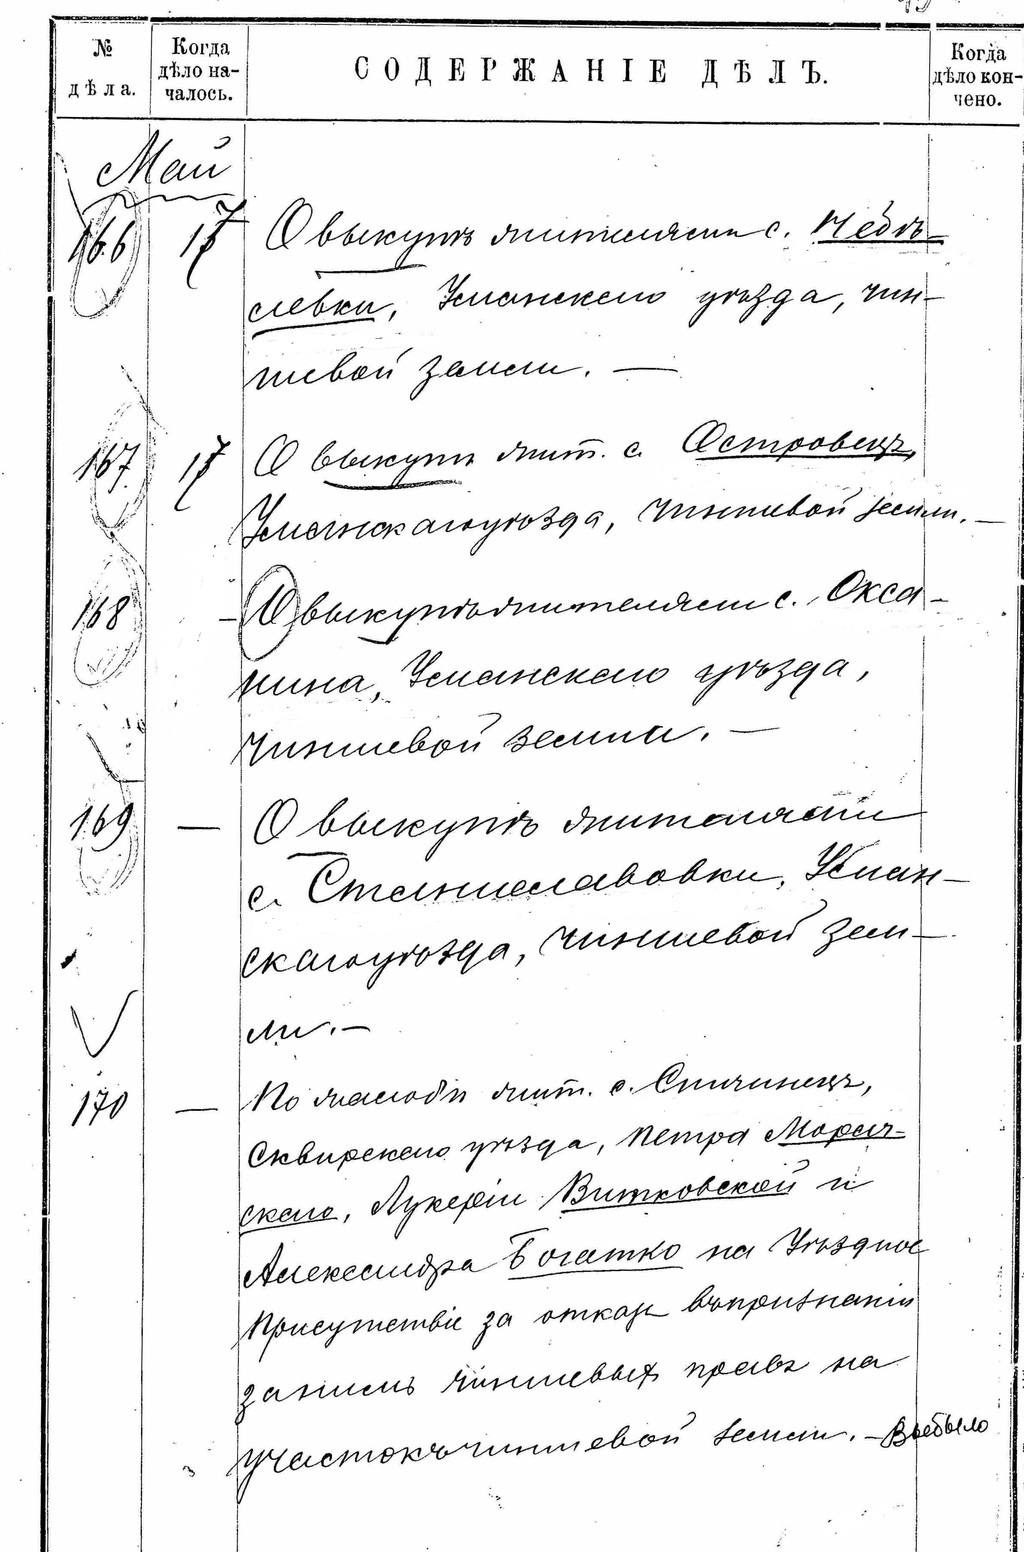 № дѣла.
Когда дѣло началось.
СОДЕРЖАНІЕ ДѢЛЪ.
Когда дѣло кончено.
Май
166 17 О выкупѣ жителями с. Небѣ-
левки, Уманскаго уѣзда, чин-
шевой земли. —
167 17 О выкупѣ жит. с. Островецъ,
Уманскаго уѣзда, чиншевой земли. —
168 - О выкупѣ жителями с. Окса-
нина, Уманскаго уѣзда,
чиншевой земли. —
169 — О выкупѣ жителями
с. Станиславовки, Уман-
скаго уѣзда, чиншевой зем-
ли. —
170 — По жалобѣ жит. с.
Сквирскаго уѣзда, Петра
скаго, Лукеріи Витковской и
Александра Богатко на Уѣздное
Присутствіе за отказъ въ признаніи
за нимъ чиншевыхъ правъ на
участокъ чиншевой земли. —